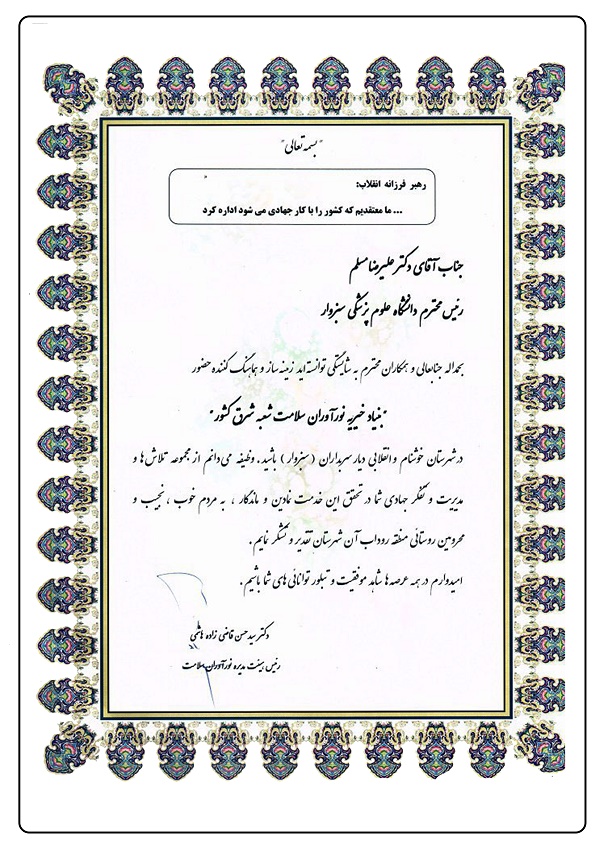 "بسمه تعالی"
رهبر فرزانه انقلاب:
... ما معتقدیم که کشور را با کار جهادی می شود اداره کرد
جناب آقای دکتر علیرضا مسلم
رئیس محترم دانشگاه علوم پزشکی سبزوار
بحمداله جنابعالی و همکاران محترم به شایستگی توانسته‌اید زمینه ساز و هماهنگ کننده حضور
"بنیاد خیریه نورآوران سلامت شعبه شرق کشور"
در شهرستان خوشنام و انقلابی دیار سربداران (سبزوار) باشید. وظیفه می‌دانم از مجموعه تلاش‌ها و
مدیریت و تفکر جهادی شما در تحقق این خدمت نمادین و ماندگار ، به مردم خوب ، نجیب و
محرومین روستائی منطقه روداب آن شهرستان تقدیر و تشکر نمایم.
امیدوارم در همه عرصه‌ها شاهد موفقیت و تبلور توانائی‌های شما باشیم.
دکتر سید حسن قاضی زاده هاشمی
رئیس هیئت مدیره نورآوران سلامت